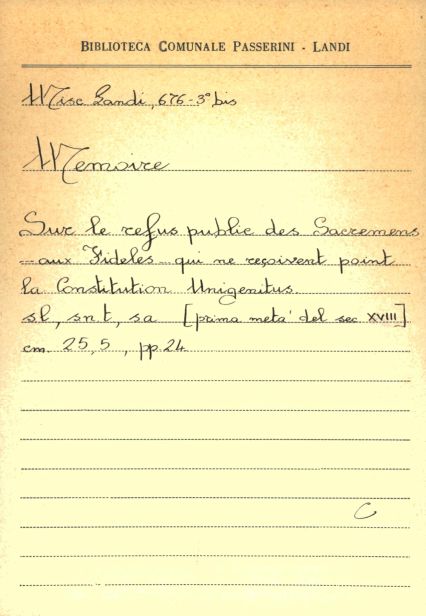 BIBLIOTECA COMUNALE PASSERINI - LANDI
Misc Landi, 676 - 3° bis
Memoire
Sur le refus public des Sacremens
aux Fideles qui ne reçoivent point
la Constitution Unigenitus.
s.l, s.n.t, s.a [prima meta' del sec XVIII]
cm. 25,5, pp. 24
C